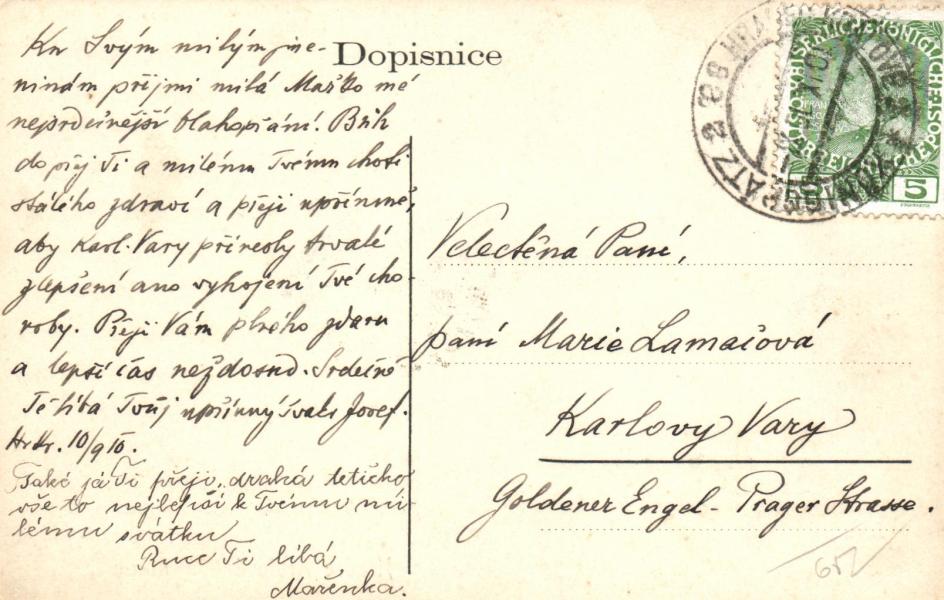 Dopisnice
Ku Svým milým jme-
ninám přijmi milá Maško mé
nejsrdečnější blahopřání. Bůh
dopřej Ti a milému Tvému choti
stálého zdraví a přeji upřímně,
aby Karl. Vary přivedly trvalé
zlepšení ano vyhojení Tvé cho-
roby. Přeji Vám plného zdaru
a lepší čas neždosud. Srdečně
Tě líbá Tvůj upřímný švakr Josef.
Hr Kr. 10/9 10.
Také já Ti přeji, drahá tetičko
vše to nejlepší k Tvému mi-
lému svátku
Ruce Ti líbá
Mařenka.
Velectěná Paní,
paní Marie Lamačová
Karlovy Vary
Goldener Engel - Prager Strasse.
5